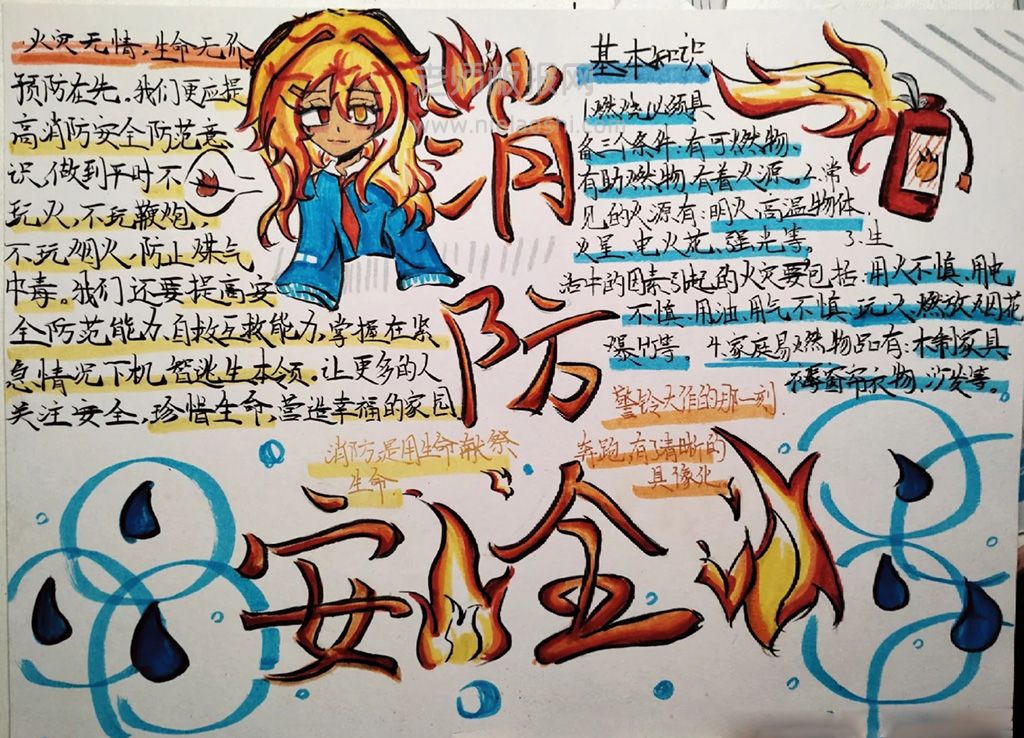 火灾无情，生命无价
预防在先。我们更应提
高消防安全防范意
识，做到平时不
玩火，不玩鞭炮，
不玩烟火，防止煤气
中毒。我们还要提高安
全防范能力，自救互救能力，掌握在紧
急情况下机智逃生本领。让更多的人
关注安全，珍惜生命，营造幸福的家园
消防是用生命献祭
生命。
消
防
安全
基本知识
1.燃烧必须具
备三个条件：有可燃物、
有助燃物、有着火源。2.常
见的火源有：明火、高温物体、
火星、电火花、强光等。 3.生
活中的因素引起的火灾要包括：用火不慎、用电
不慎、用油、用气不慎、玩火、燃放烟花
爆竹等 4.家庭易燃物品有：木制家具
窗帘衣物、沙发等。
警铃大作的那一刻
奔跑，有了清晰的
具像化
老师板报网